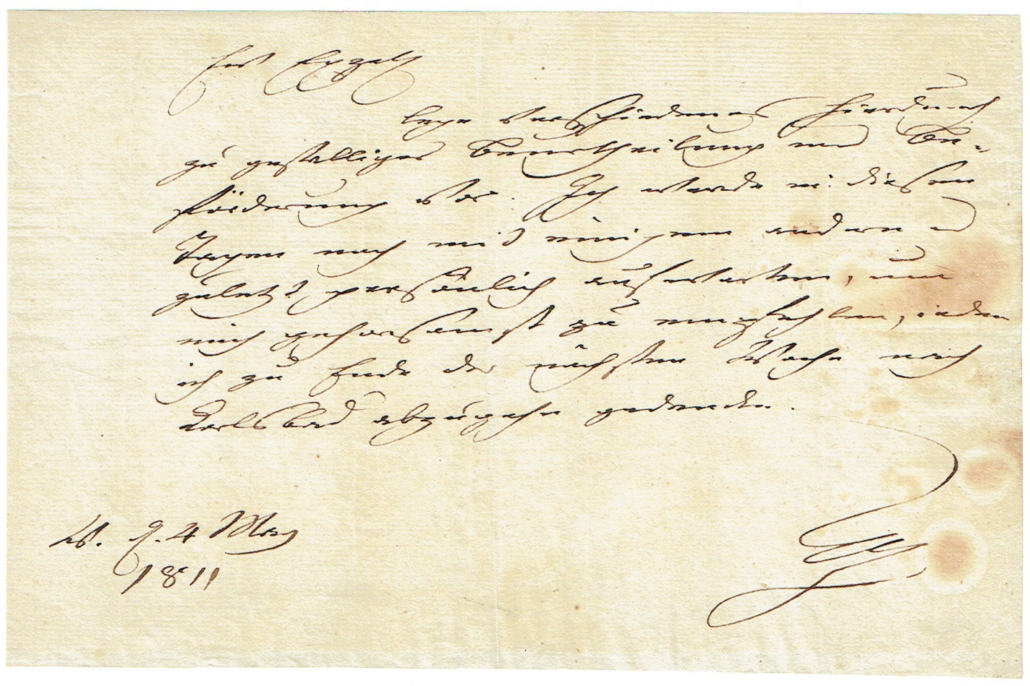 Ew Excell
lege verschiedenes hierdurch
zu gefälliger Beurtheilung und Be-
förderung vor. Ich werde in diesen
Tagen noch mit einigem anderen
zuletzt persönlich aufwarten, um
mich gehorsamst zu empfehlen, indem
ich zu Ende der nächsten Woche nach
Carlsbad abzugehn gedencke.
W. d. 4 May
1811
G